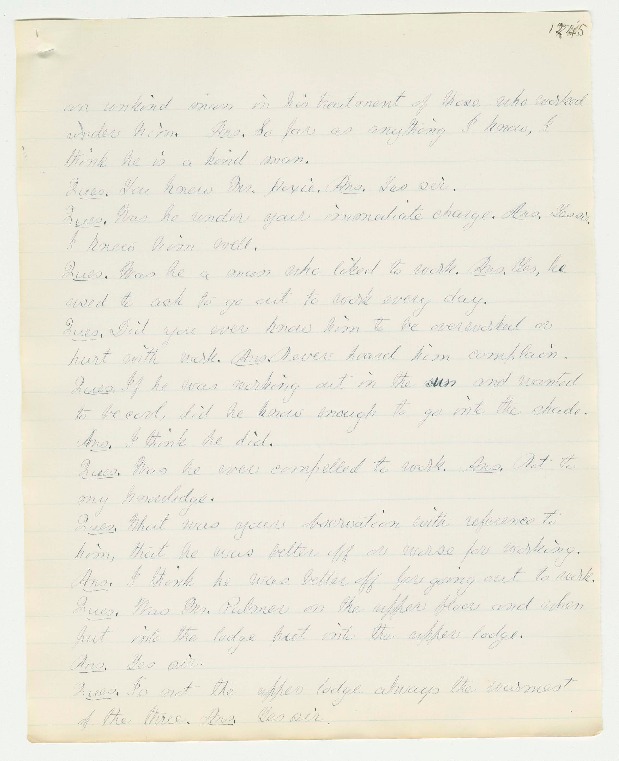 1245
an unkind man in his treatment of those who worked
under him. Ans. So far as anything I knew, I
think he is a kind man.
Ques. You knew Mr. Hoxie. Ans. Yes sir.
Ques. Was he under your immediate charge. Ans. Yes sir.
I knew him well.
Ques. Was he a man who liked to work. Ans. Yes, he
used to ask to go out to work every day.
Ques. Did you ever know him to be overworked or
hurt with work. Ans. Never heard him complain.
Ques. If he was working out in the sun and wanted
to be cool, did he know enough to go into the shade.
Ans. I think he did.
Ques. Was he ever compelled to work. Ans. Not to
my knowledge.
Ques. What was your observation with reference to
him, that he was better off or worse for working.
Ans. I think he was better off for going out to work.
Ques. Was Mr. Palmer on the upper floor and when
put into the lodge put into the upper lodge.
Ans. Yes sir.
Ques. Is not the upper lodge always the warmest
of the three. Ans. Yes sir.